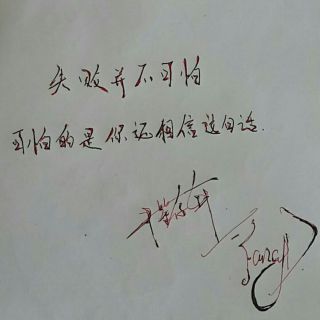 失败并不可怕
可怕的是你还相信这句话.